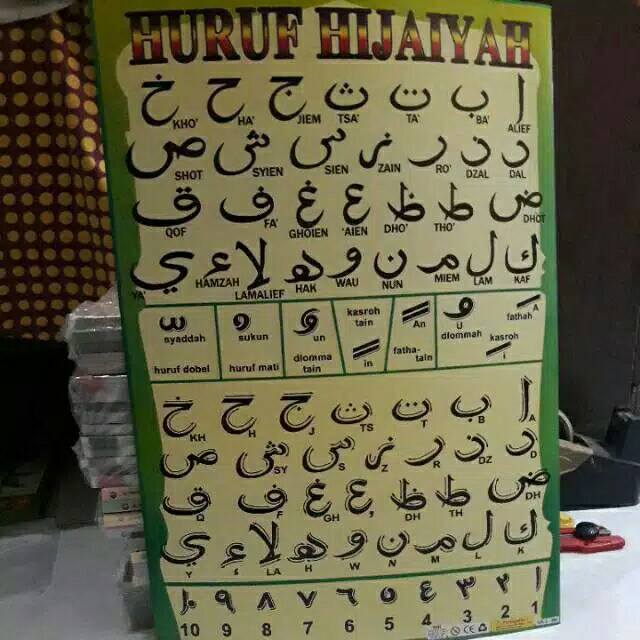 HURUF HIJAIYAH
ا ب ت ث ج ح خ
KHO' HA' JIEM TSA' TA' BA' ALIEF
د ذ ر ز س ش ص
SHOT SYIEN SIEN ZAIN RO' DZAL DAL
ض ط ظ ع غ ف ق
QOF FA' GHOIEN 'AIEN DHO' THO' DHOT
ك ل م ن و ه لا ء ي
YA' HAMZAH LAMALIEF HAK WAU NUN MIEM LAM KAF
syaddah
huruf dobel
sukun
huruf mati
un
dlomma
tain
kasroh
tain
in
An
fatha-
tain
U
dlommah
A
fathah
kasroh
i
ا ب ت ث ج ح خ
KH H J TS T B A
د ذ ر ز س ش ص
SY S Z R DZ D
ض ط ظ ع غ ف ق
Q F GH ' DH TH DH
ك ل م ن و ه لا ء ي
Y ء LA H W N M L K
١ ٢ ٣ ٤ ٥ ٦ ٧ ٨ ٩ ١٠
10 9 8 7 6 5 4 3 2 1